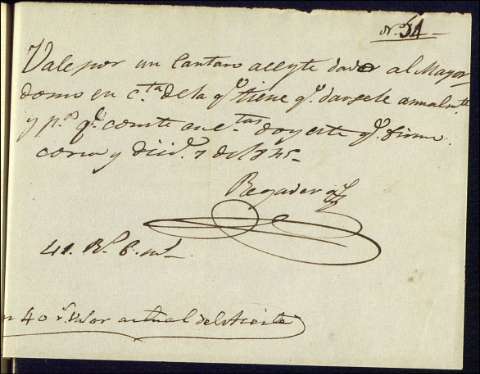 Nº 54
Vale por un Cantaro aceyte dado al Mayor
domo en c.ta de la q.e tiene q.e darsele anualm.te
y p.a q.e conste en c.tas doy este q.e firmo
Coria y Dici.e 7 de 1845
41. R.s 6. m.s
40 r.s valor actual del Aceite